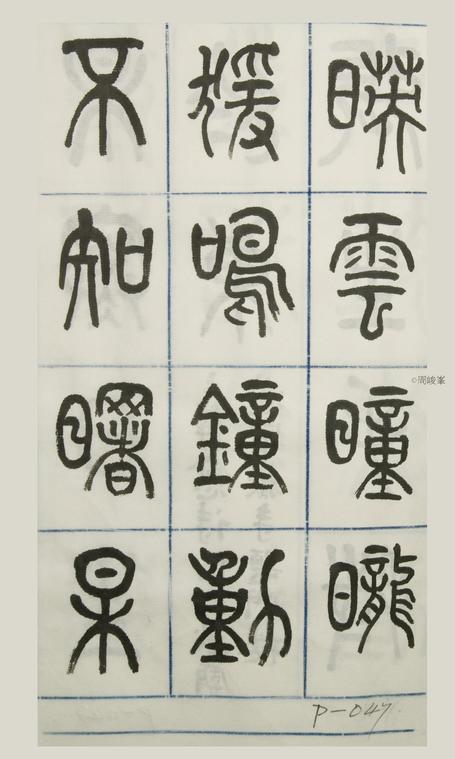 暎雲曈曨
猨鳴鐘動
不知曙杲
P-047
©周峻峯